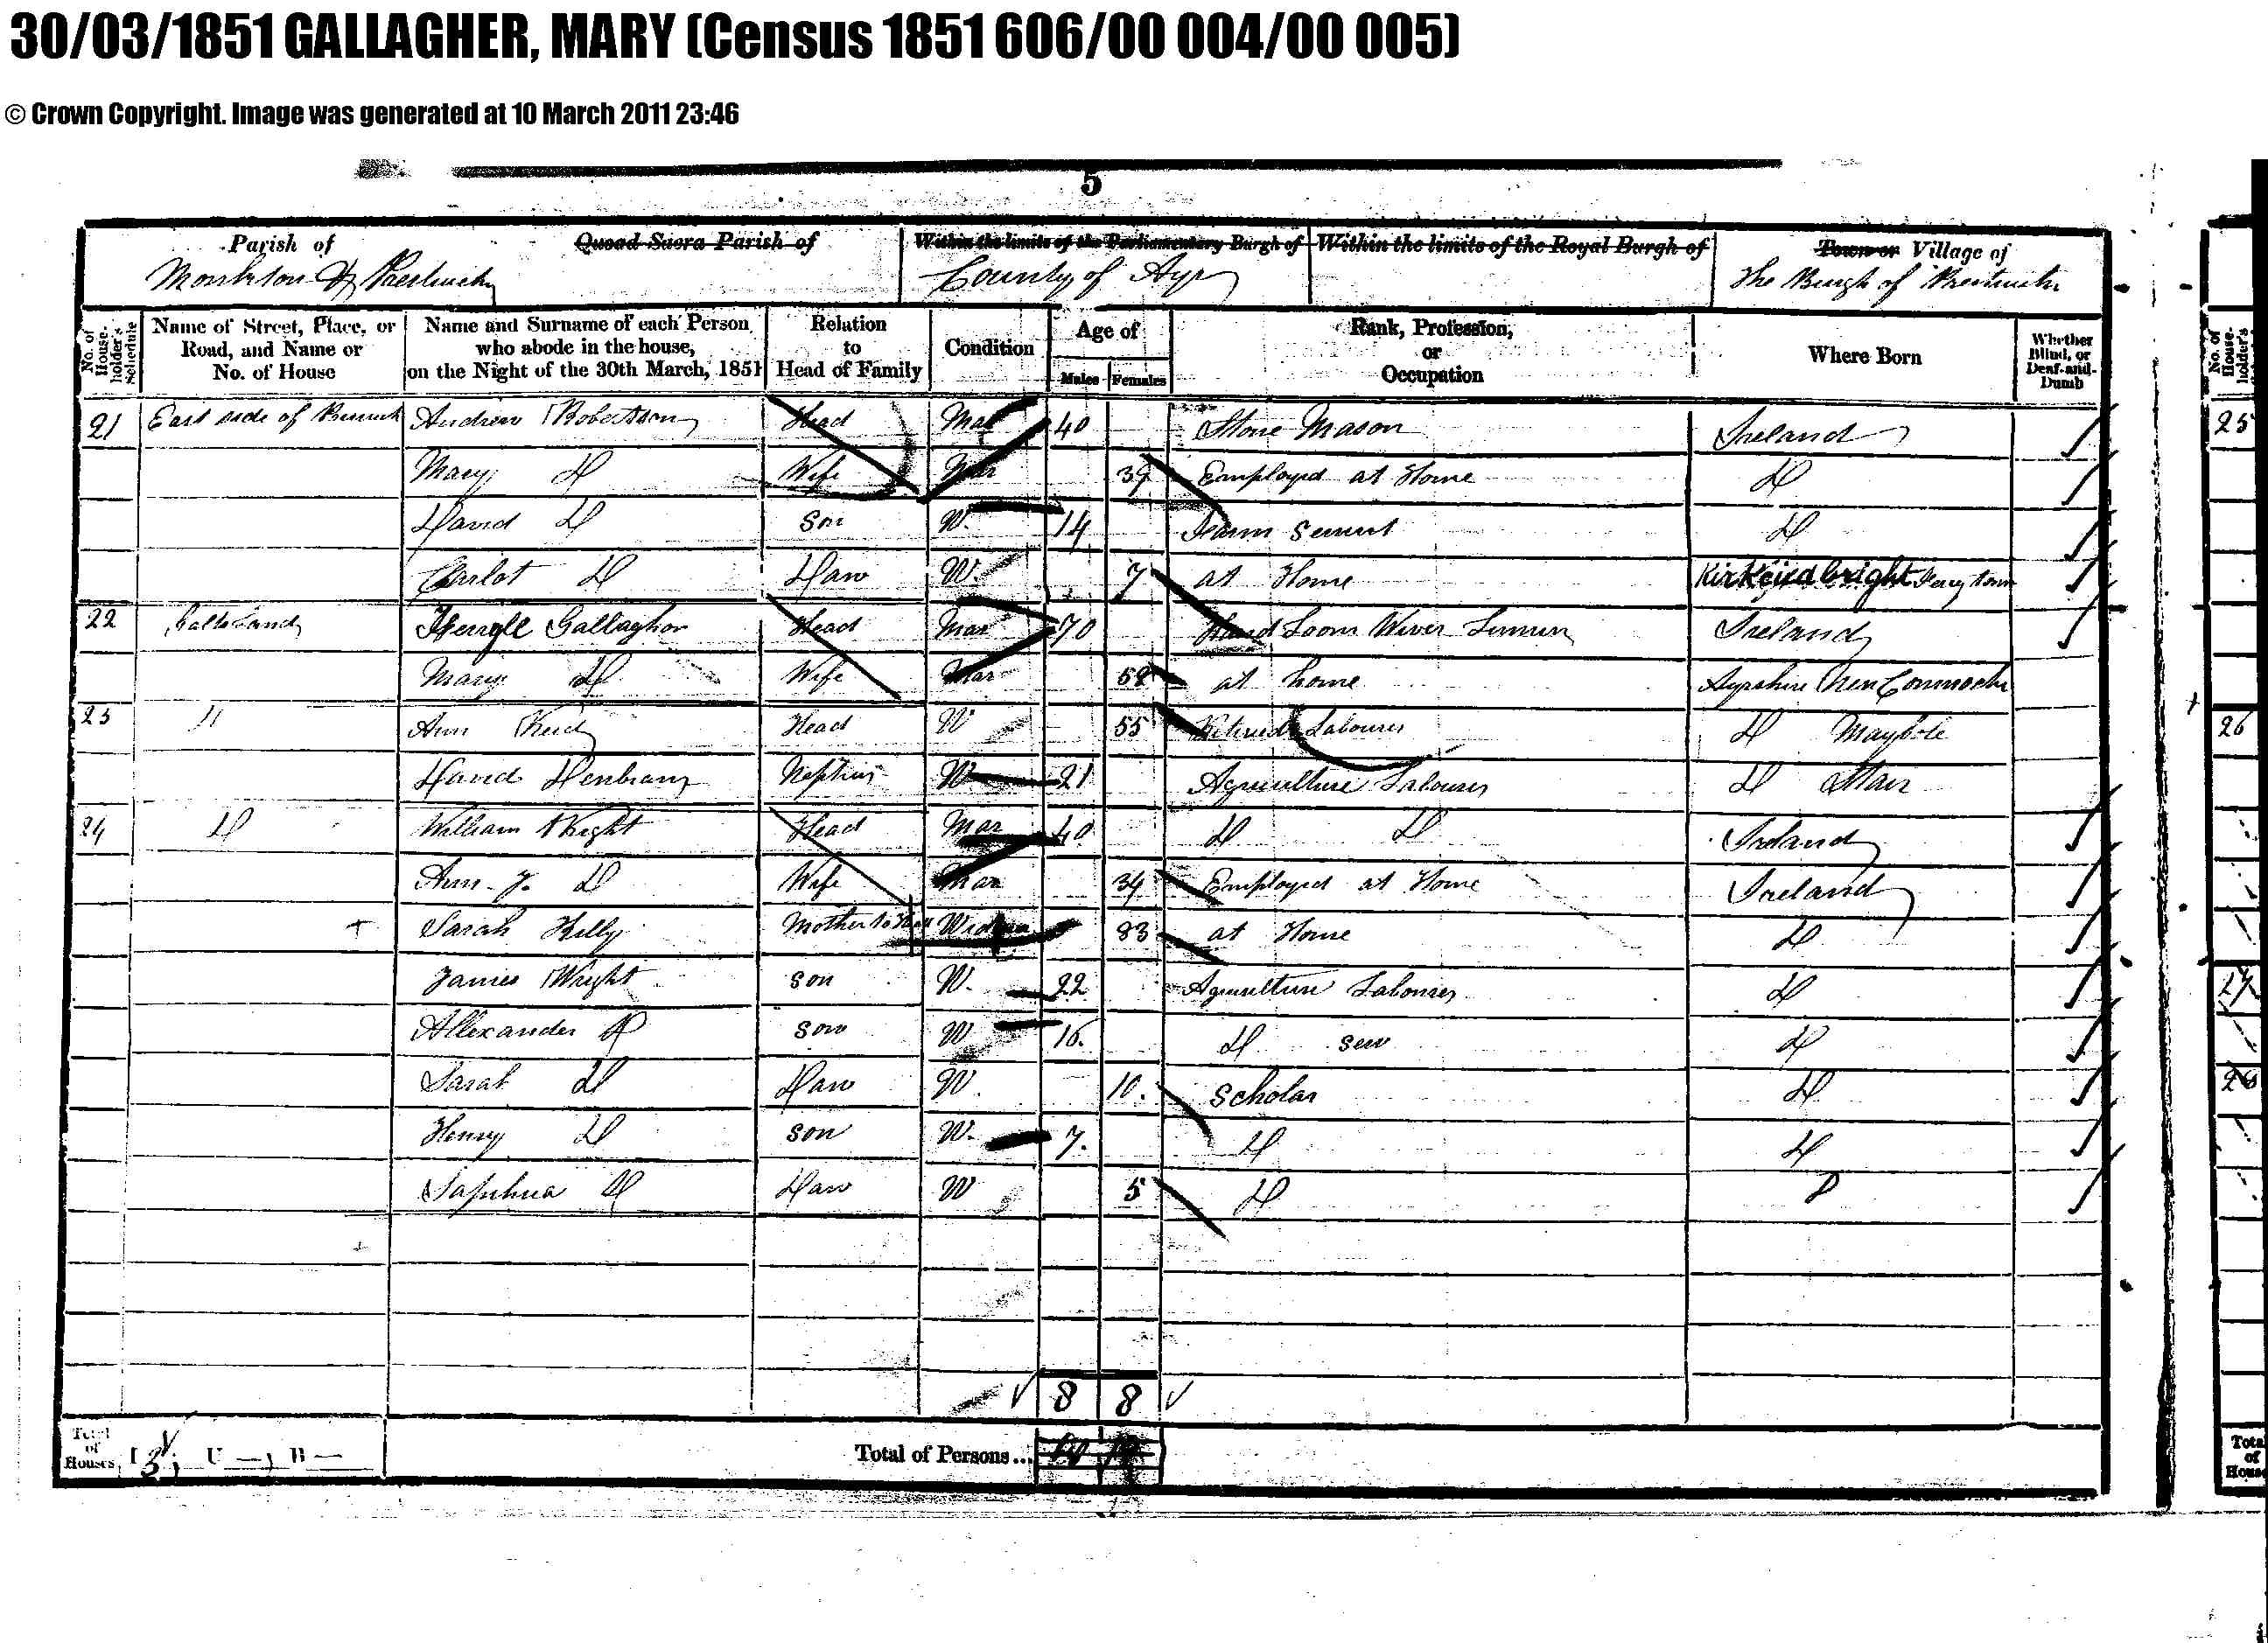 30/03/1851 GALLAGHER, MARY (Census 1851 606/00 004/00 005)
© Crown Copyright. Image was generated at 10 March 2011 23:46
5
Parish of Quoad Sacra Parish of Within the limits of the Parliamentary Burgh of Within the limits of the Royal Burgh of Town or Village of
Monkton & County of Ayr The Burgh of
No. of House-holder's Schedule
Name of Street, Place, or Road, and Name or No. of House
Name and Surname of each Person who abode in the house, on the Night of the 30th March, 1851
Relation to Head of Family
Condition
Age of
Males Females
Rank, Profession, or Occupation
Where Born
Whether Blind, or Deaf-and-Dumb
21 East side of Andrew Robertson Head Mar 40 Stone Mason Ireland
Mary D Wife Mar 39 Employed at Home D
David D Son W. 14 Farm D
D Daw W. 7 at Home Kirkcudbright
22 Head Mar 70 Hand Loom Ireland
Mary D Wife Mar at home Ayrshire
23 Ann Reid Head W 55 Labourer D Maybole
David W 21 Agriculture Labourer D Stair
24 D William Wright Head Mar 40 D D Ireland
Ann J. D Wife Mar 34 Employed at Home Ireland
Sarah Kelly Mother to Widow 83 at Home D
James Wright son W. 22 Agriculture Labourer D
Allexander D son W 16. D D
Sarah D Daw W. 10. Scholar D
Henry D son W. 7. D D
D Daw W 5 D D
8 8
Total of Houses, I 3; U —, B —
Total of Persons...
No. of House-holder's
25
26
27
28
Total of House